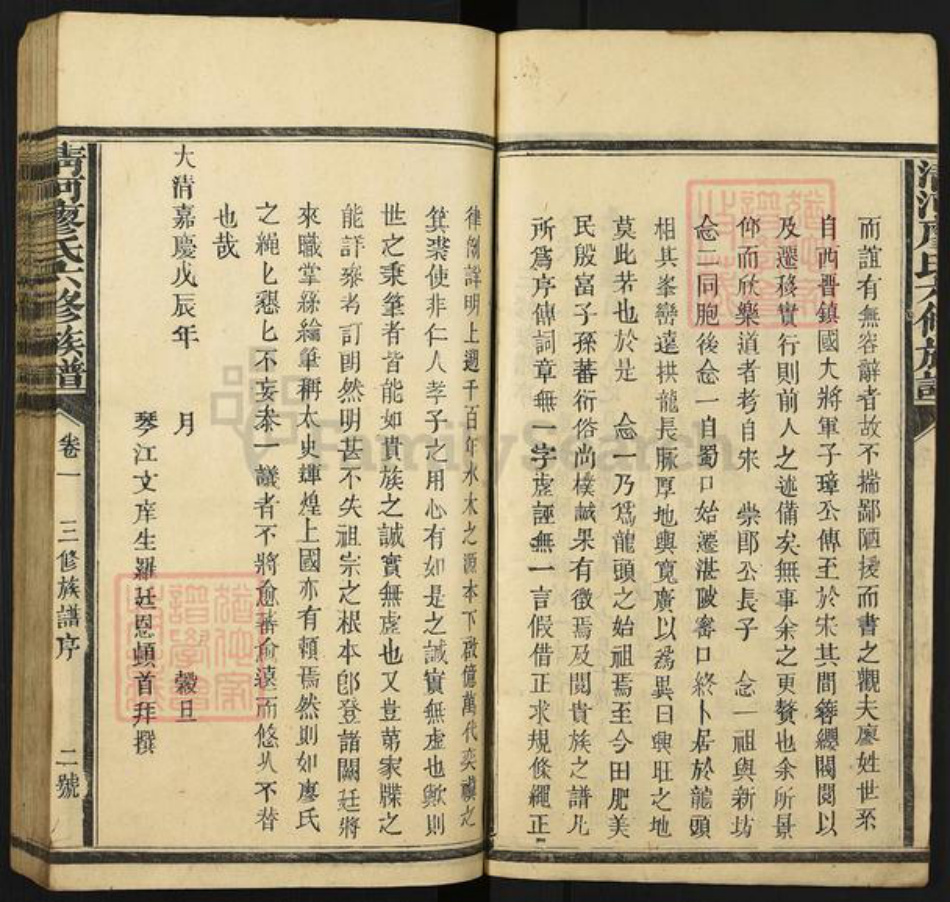 清河廖氏六修族譜
而誼有無容辭者故不揣鄙陋援而書之觀夫廖姓世系
自西晋鎮國大將軍子璋公傳至於宋其間簪纓閥閱以
及遷移實行則前人之述備矣無事余之更贅也余所景
仰而欣樂道者考自宋 崇郎公長子 念一祖與新坊
念三同胞後念一自蜀口始遷湛陂寨口終卜居於龍頭
相其峯巒遠拱龍長脉厚地輿寬廣以為異日興旺之地
莫此若也於是 念一乃為龍頭之始祖焉至今田肥美
民殷富子孫蕃衍俗尚樸誠果有徵焉及閱貴族之譜凡
所為序傳詞章無一字虛誣無一言假借正求規條繩正
律例詳明上邇千百年水木之源本下啟億萬代奕禩之
箕裘使非仁人孝子之用心有如是之誠實無虛也歟則
世之秉筆者皆能如貴族之誠實無虛也又豈第家牒之
能詳泰考訂明然明甚不失祖宗之根本即登諸闕廷將
來職掌絲綸筆稱太史輝煌上國亦有賴焉然則如廖氏
之繩匕懇匕不妄泰一議者不將愈蕃愈遠而悠久不替
也哉
大清嘉慶戊辰年 月 穀旦
琴江文庠生羅廷恩頓首拜撰
清河廖氏六修族譜 卷一 三修族譜序 二號
FamilySearch